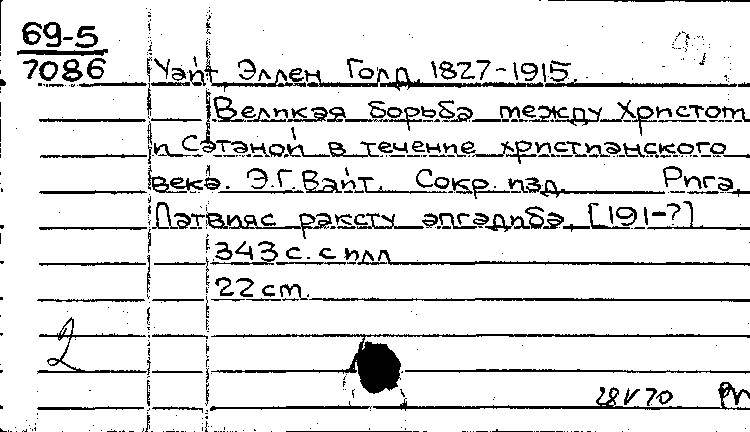 69-5
7086
Уайт, Эллен Голд. 1827-1915.
Великая борьба между Христом
и Сатаной в течение христианского
века. Э.Г.Вайт. Сокр. изд. Рига,
Латвияс раксту апгадиба, [191-?]
343 с. с илл
22 см.
2
28 V 70 Ри